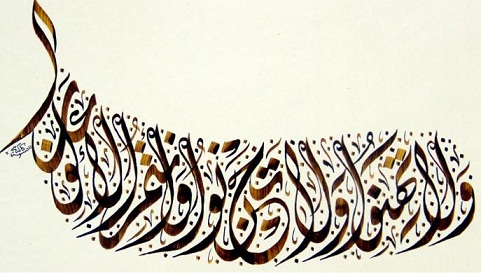 ولا تهنوا ولا تحزنوا وأنتم الأعلون